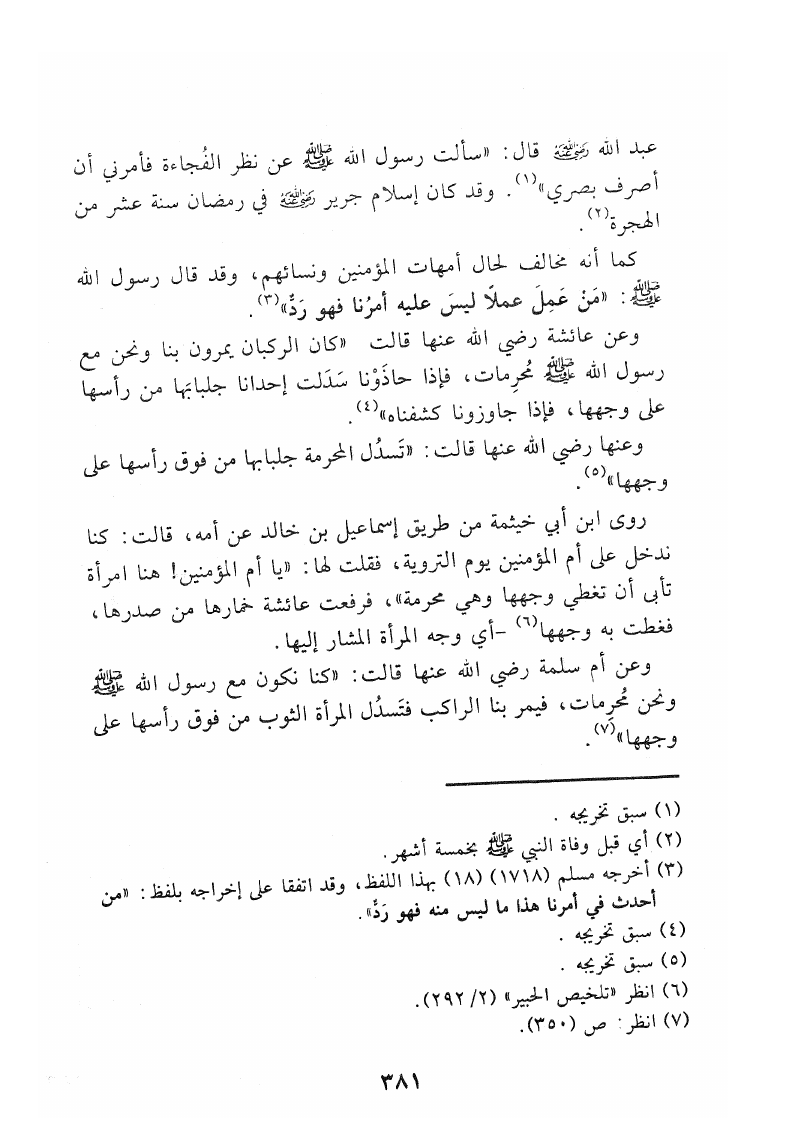 عبد الله رضي الله عنه قال: «سألت رسول الله ﷺ عن نظر الفُجاءة فأمرني أن
أصرف بصري»(١). وقد كان إسلام جرير رضي الله عنه في رمضان سنة عشر من
الهجرة(٢).
كما أنه مخالف لحال أمهات المؤمنين ونسائهم، وقد قال رسول الله
ﷺ: «مَنْ عَمِلَ عملاً ليسَ عليه أمرُنا فهو رَدٌّ»(٣).
وعن عائشة رضي الله عنها قالت «كان الركبان يمرون بنا ونحن مع
رسول الله ﷺ مُحرِمات، فإذا حاذَوْنا سَدَلت إحدانا جلبابَها من رأسها
على وجهها، فإذا جاوزونا كشفناه»(٤).
وعنها رضي الله عنها قالت: «تَسدُل المحرمة جلبابها من فوق رأسها على
وجهها»(٥).
روى ابن أبي خيثمة من طريق إسماعيل بن خالد عن أمه، قالت: كنا
ندخل على أم المؤمنين يوم التروية، فقلت لها: «يا أم المؤمنين! هنا امرأة
تأبى أن تغطي وجهها وهي محرمة»، فرفعت عائشة خمارها من صدرها،
فغطت به وجهها(٦) -أي وجه المرأة المشار إليها.
وعن أم سلمة رضي الله عنها قالت: «كنا نكون مع رسول الله ﷺ
ونحن مُحرِمات، فيمر بنا الراكب فتَسدُل المرأة الثوب من فوق رأسها على
وجهها»(٧).
(١) سبق تخريجه .
(٢) أي قبل وفاة النبي ﷺ بخمسة أشهر.
(٣) أخرجه مسلم (١٧١٨) (١٨) بهذا اللفظ، وقد اتفقا على إخراجه بلفظ: «من
أحدث في أمرنا هذا ما ليس منه فهو رَدٌّ».
(٤) سبق تخريجه .
(٥) سبق تخريجه .
(٦) انظر «تلخيص الحبير» (٢/ ٢٩٢).
(٧) انظر: ص (٣٥٠).
٣٨١